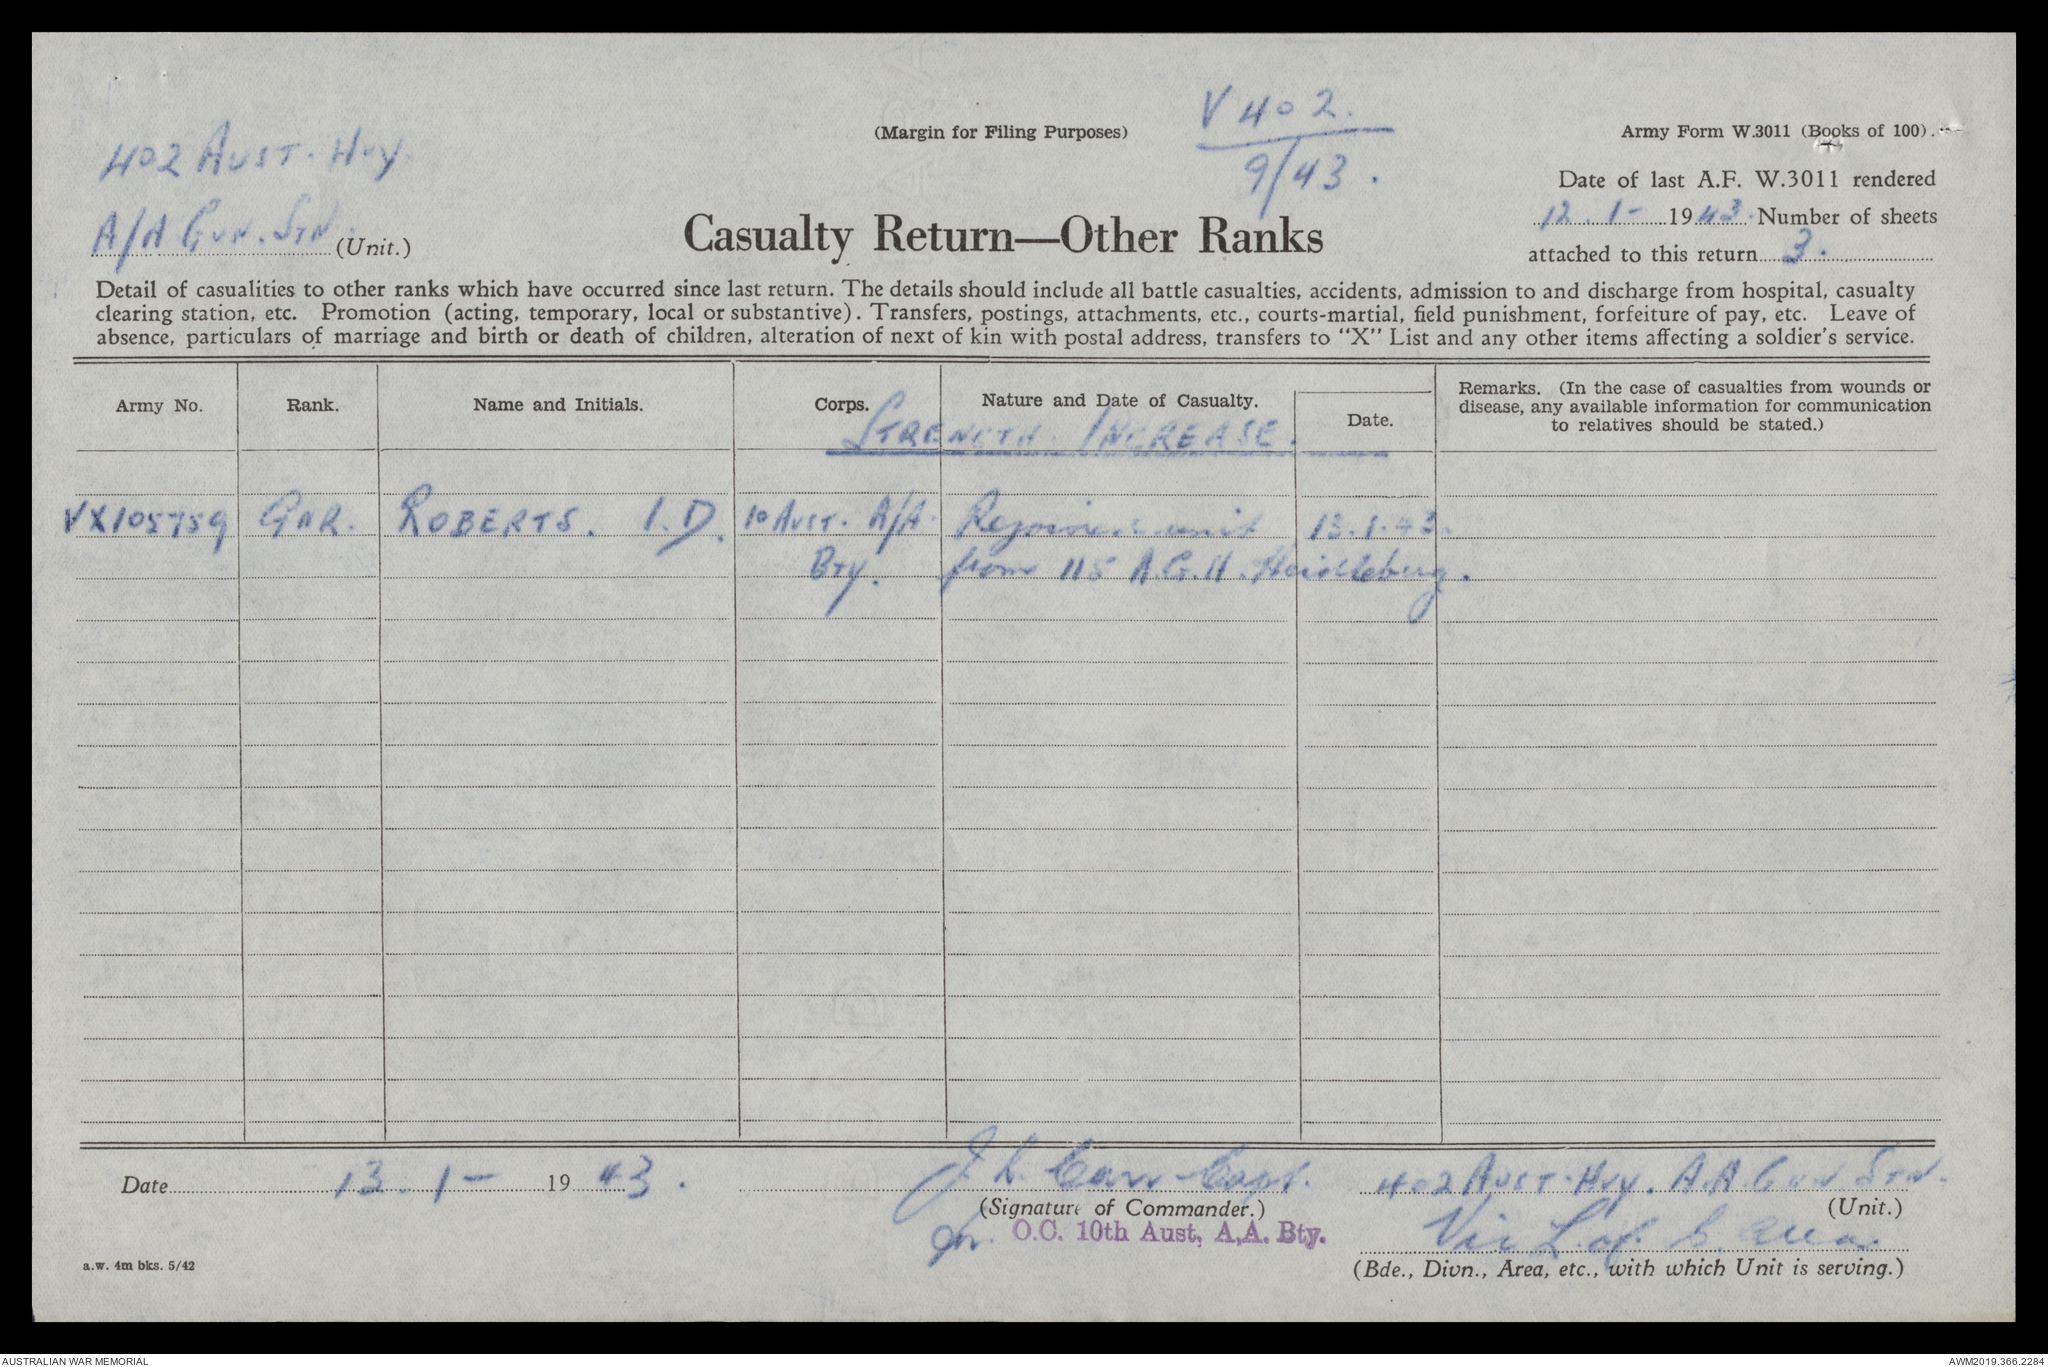 V 402.
9/43.
402 AUST. HVY
A/A GUN. STN. (Unit.)
(Margin for Filing Purposes)
Army Form W.3011 (Books of 100).
Date of last A.F. W.3011 rendered
12.1- 1943. Number of sheets
attached to this return 3.
Casualty Return—Other Ranks
Detail of casualities to other ranks which have occurred since last return. The details should include all battle casualties, accidents, admission to and discharge from hospital, casualty
clearing station, etc. Promotion (acting, temporary, local or substantive). Transfers, postings, attachments, etc., courts-martial, field punishment, forfeiture of pay, etc. Leave of
absence, particulars of marriage and birth or death of children, alteration of next of kin with postal address, transfers to "X" List and any other items affecting a soldier's service.
Army No. Rank. Name and Initials. Corps. Nature and Date of Casualty. Date. Remarks. (In the case of casualties from wounds or
disease, any available information for communication
to relatives should be stated.)
STRENGTH INCREASE.
VX105759 GNR. ROBERTS. I.D. 10 AUST. A/A Rejoined unit 13.1.43.
BTY. from 115 A.G.H. Heidleburg.
Date 13.1- 1943. J. L. Carr Capt. 402 AUST. HVY. A.A. GUN STN.
(Signature of Commander.) (Unit.)
for. O.C. 10th Aust, A,A. Bty. Vic L. of C. Area.
(Bde., Divn., Area, etc., with which Unit is serving.)
a.w. 4m bks. 5/42
AUSTRALIAN WAR MEMORIAL
AWM2019.366.2284